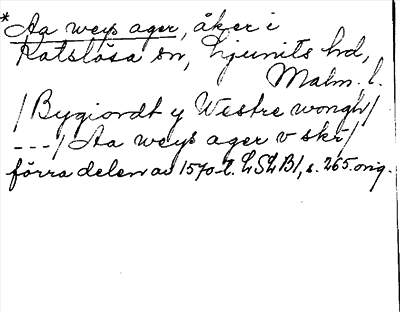 *Aa weys ager, åker i
Katslösa sn, Ljunits hd,
Malm. l.
/Bygiordt y Westre wongh/
---/ Aa weys ager v skr/
förra delen av 1570-t. LSLB1, s. 265. orig.